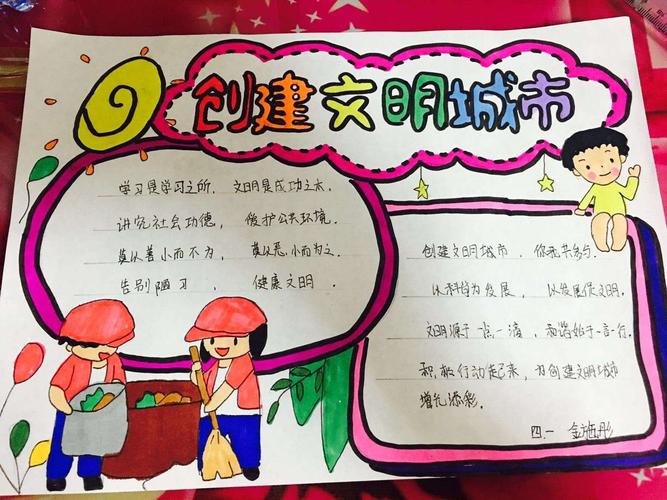 创建文明城市
学习是学习之所，文明是成功之本．
讲究社会功德，爱护公共环境．
莫以善小而不为，莫以恶小而为之．
告别陋习，健康文明．
创建文明城市，你我共参与．
以科技为发展，以发展促文明．
文明源于一点一滴，和谐始于一言一行．
积极行动起来，为创建文明城市
增光添彩。
四．一 金施彤